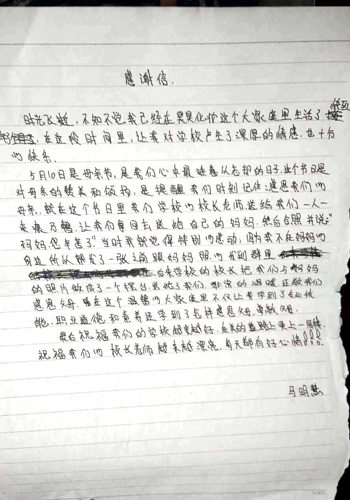 感谢信.
时光飞逝，不知不觉我已经在昊昊化妆这个大家庭里生活了
在这段时间里，让我对学校产生了深厚的情感，也十分
的快乐.
5月10日是母亲节，是我们心中最难忘从忘却的日子，这个节日是
对母亲的赞美和颂扬，是提醒我们时刻记住 感恩我们的
母亲，就在这个节日里我们学校的校长老师送给我们一人一
束康乃馨，让我们拿回去送给自己的妈妈，然后合照并说:"
妈妈您辛苦了"当时我就觉得特别的感动，因为我不在妈妈的
身边所以就发了一张之前跟妈妈照的 发到群里
后来学校的校长把我们与妈妈
的照片做成了一个摆台送给了我们，非常的温暖，正教我们
感恩父母. 在这个温馨的大家庭里不仅让我学到了专业技
能，职业道德和素养还学到了怎样感恩父母，孝敬父母.
最后祝福我们的学校越来越好，在未来的道路上更上一层楼
祝福我们的校长老师越来越漂亮，每天都有好心情!!!
马明慧